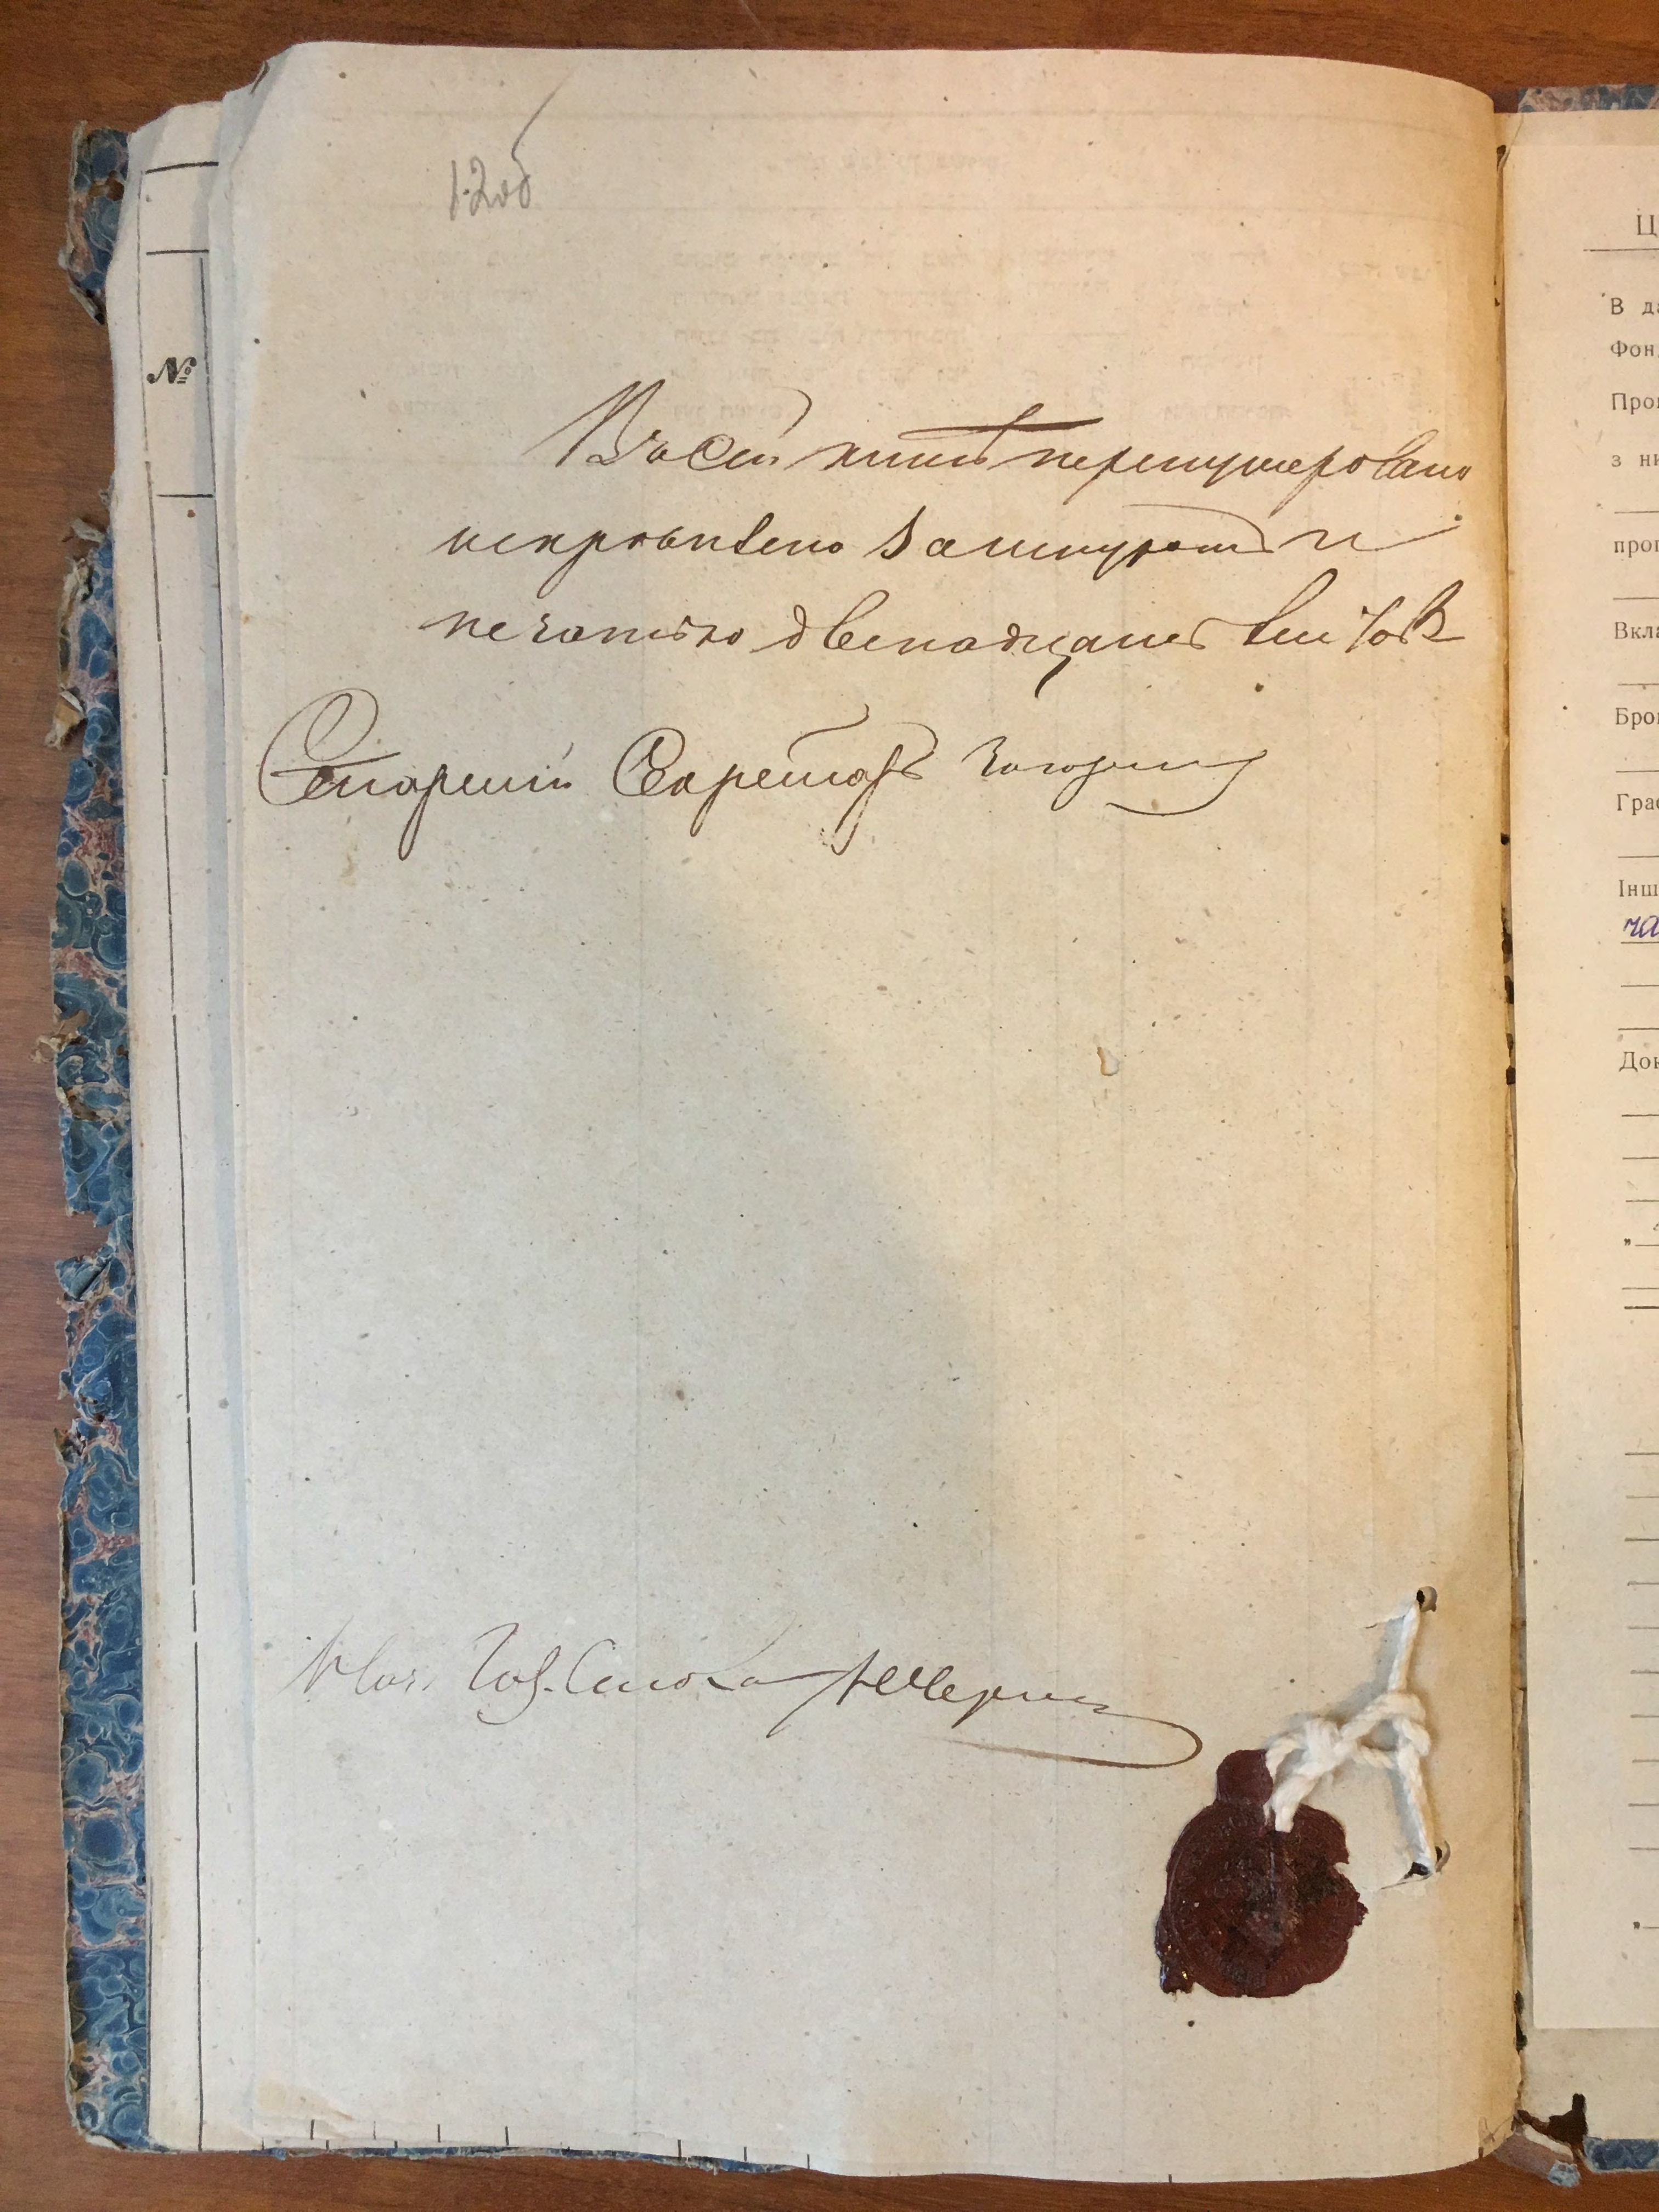 12об
№
Въ сей книгѣ перенумеровано
и скрѣплено за шнуромъ и
печатью двенадцать листовъ
Старшій Секретарь
Ц
В да
Фон
Про
з ни
прог
Вкла
Брог
Граф
Інш
ча
Док